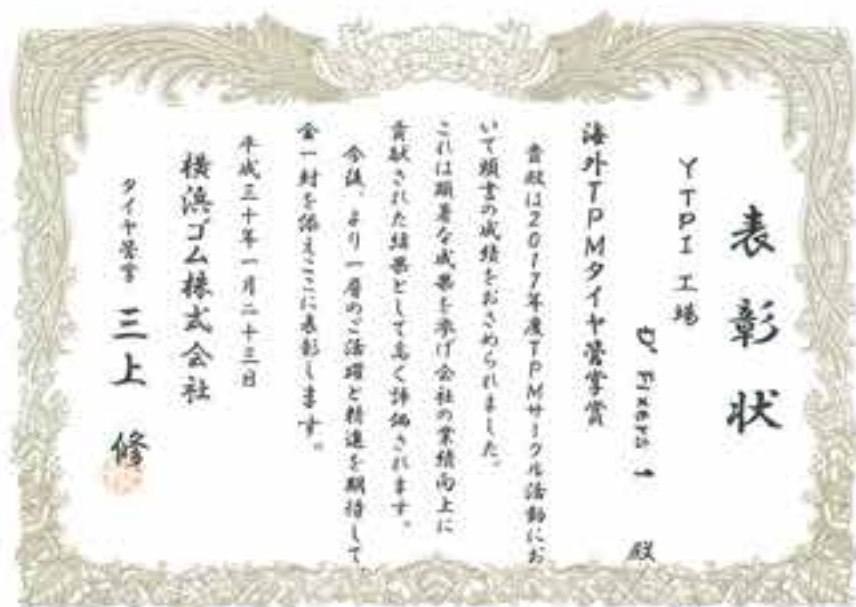 表彰状
YTPI 工場
D' Fixers 1 殿
海外TPMタイヤ管掌賞
貴殿は2017年度TPMサークル活動にお
いて頭書の成績をおさめられました。
これは顕著な成果を挙げ会社の業績向上に
貢献された結果として高く評価されます。
今後、より一層のご活躍と精進を期待して、
金一封を添えここに表彰します。
平成三十年一月二十三日
横浜ゴム株式会社
タイヤ管掌 三上 修